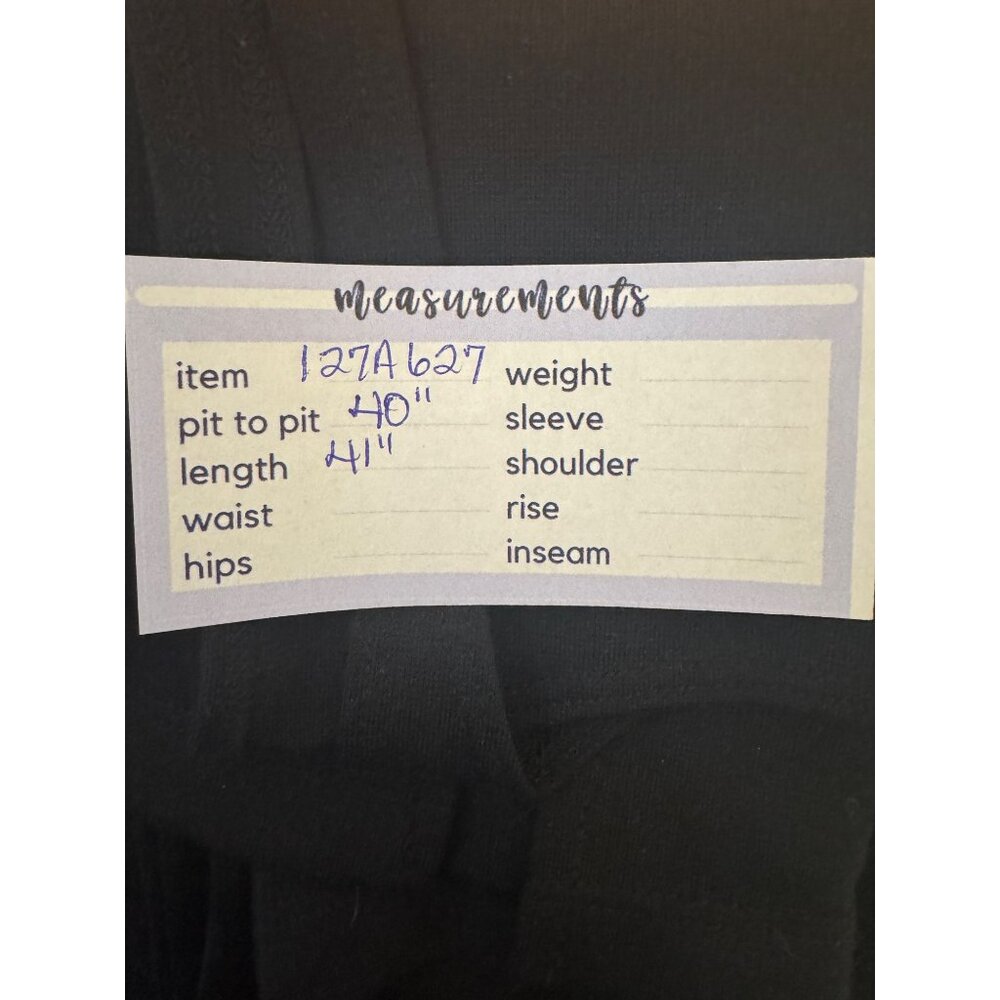 measurements
item 127A627
pit to pit 40"
length 41"
waist
hips
weight
sleeve
shoulder
rise
inseam